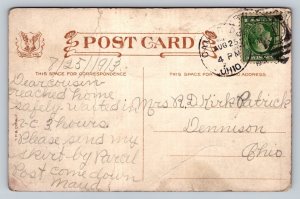 POST CARD
THIS SPACE FOR CORRESPONDENCE
THIS SPACE FOR ADDRESS ONLY
AUG 25
4 P
OHIO
7/25/1913
Dear cousin
reached home
safely waited in
3 hours
Please send my
skirt by Parcel
Post come down
Maud
Mrs R D Kirk Patrick
Dennison
Ohio